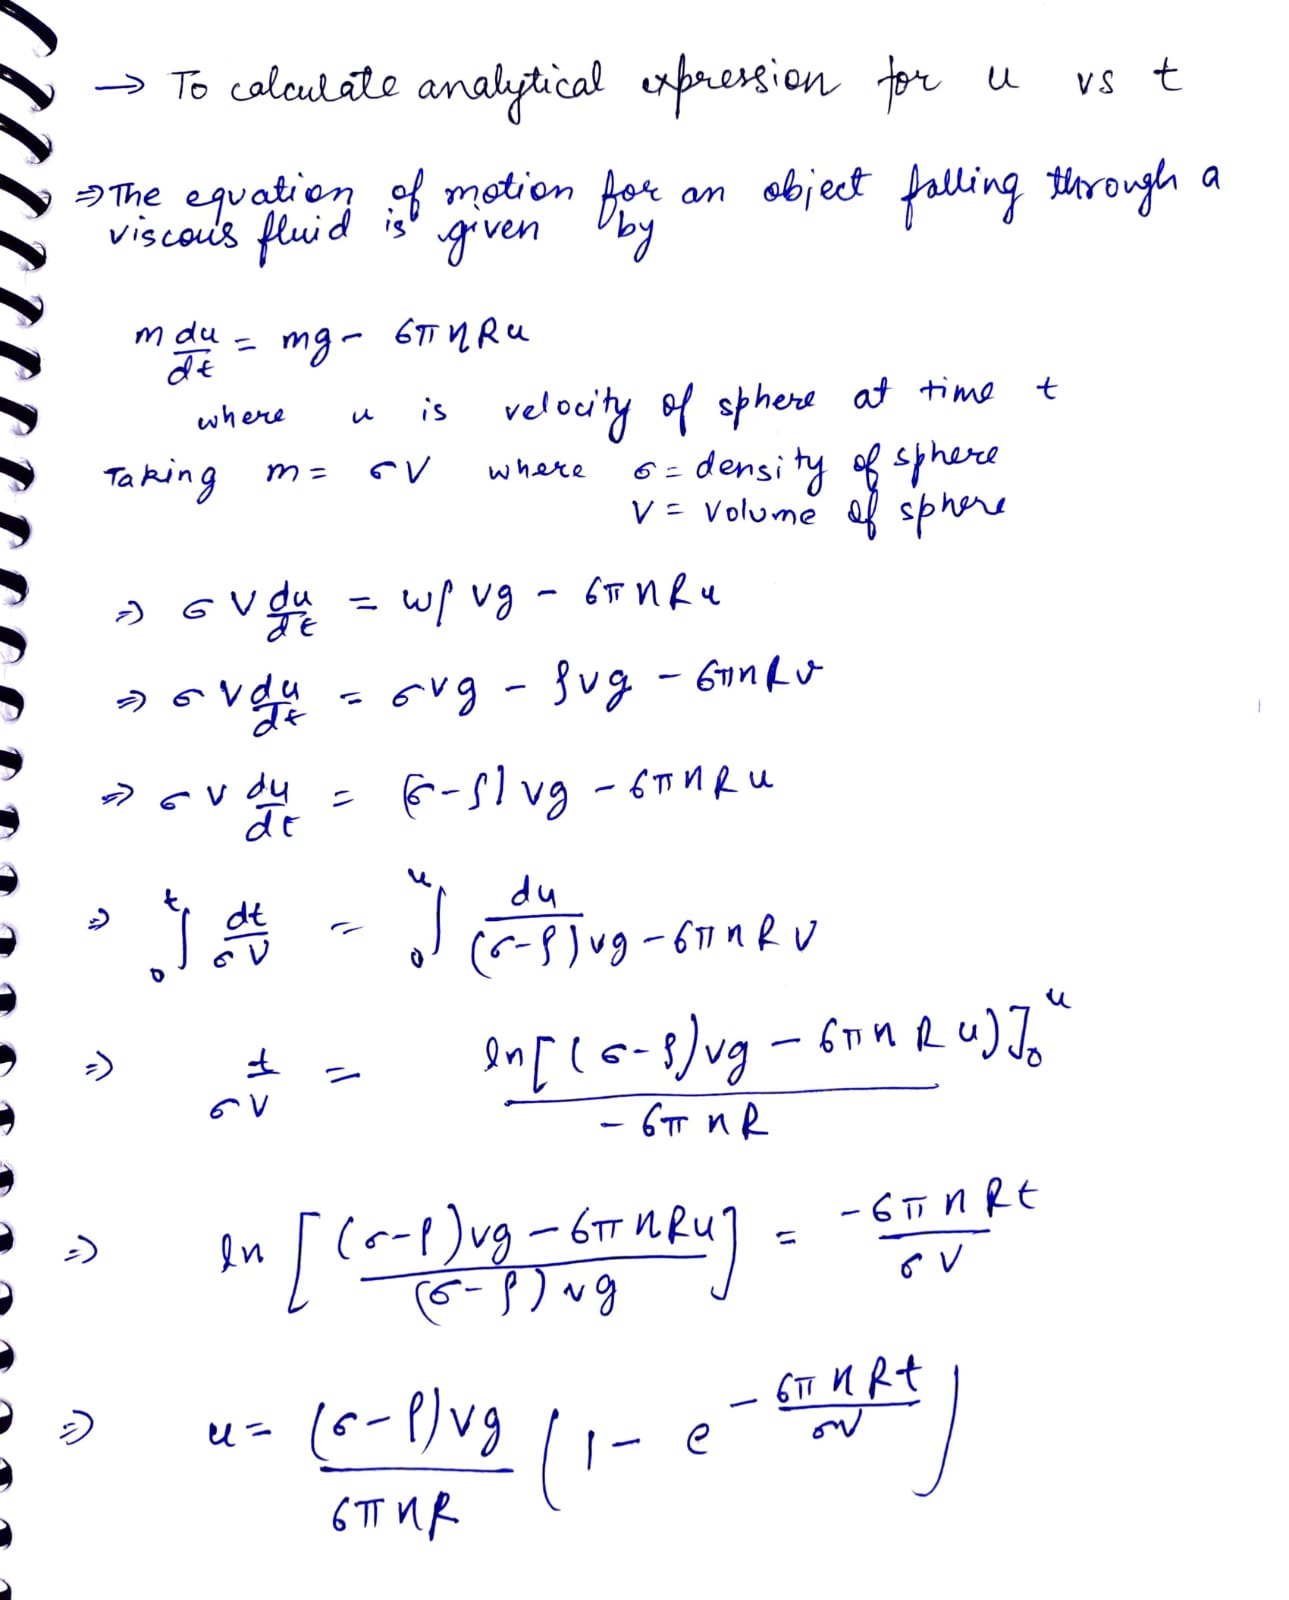 → To calculate analytical expression for u vs t
⇒ The equation of motion for an object falling through a
viscous fluid is given by
m du/dt = mg - 6πηRu
where u is velocity of sphere at time t
Taking m = σV where σ = density of sphere
V = Volume of sphere
⇒ σV du/dt = Vg - 6πηRu
⇒ σV du/dt = σVg - ρVg - 6πηRv
⇒ σV du/dt = (σ-ρ)Vg - 6πηRu
⇒ ∫₀ᵗ dt/σV = ∫₀ᵘ du/((σ-ρ)Vg - 6πηRV)
⇒ t/σV = ln[((σ-ρ)Vg - 6πηRu)]₀ᵘ/(-6πηR)
⇒ ln[((σ-ρ)Vg - 6πηRu)/((σ-ρ)Vg)] = -6πηRt/σV
⇒ u = (σ-ρ)Vg/6πηR (1 - e^(-6πηRt/σV))